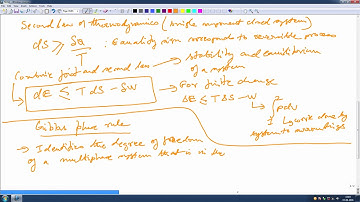 Second Law of thermodynamics (single component closed system)
dS ≥ δQ/T : Equality sign corresponds to reversible process
Combine first and second law → stability and equilibrium of a system
dE ≤ TdS − δW → For finite change
ΔE ≤ TΔS − W
∫ pdv
1 2
Work done by system to surroundings
Gibbs phase rule
→ Identifies the degree of freedom
of a multiphase system that is in the